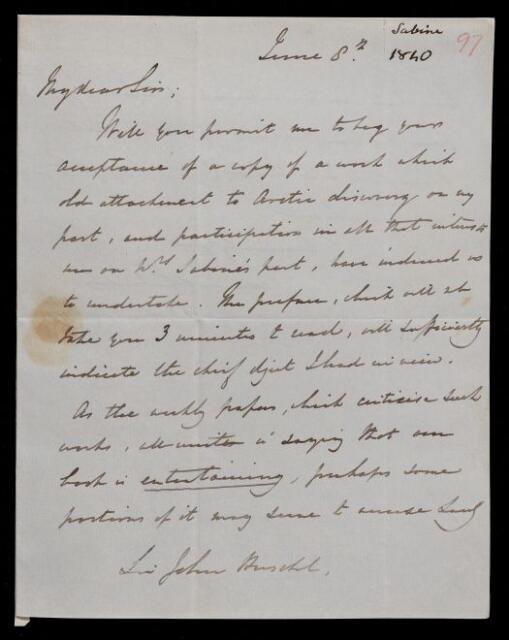 Sabine
97
June 8th. 1840
My dear Sir;
Will you permit me to beg your
acceptance of a copy of a work which
old attachment to Arctic discovery on my
part, and participation in all that interests
me on Mrs Sabine's part, have induced us
to undertake. The preface, which will not
take you 3 minutes to read, will sufficiently
indicate the chief object I had in view.
As the weekly papers, which criticise such
works, all unite in saying that our
book is entertaining, perhaps some
portions of it may serve to amuse Lady
Sir John Herschel.